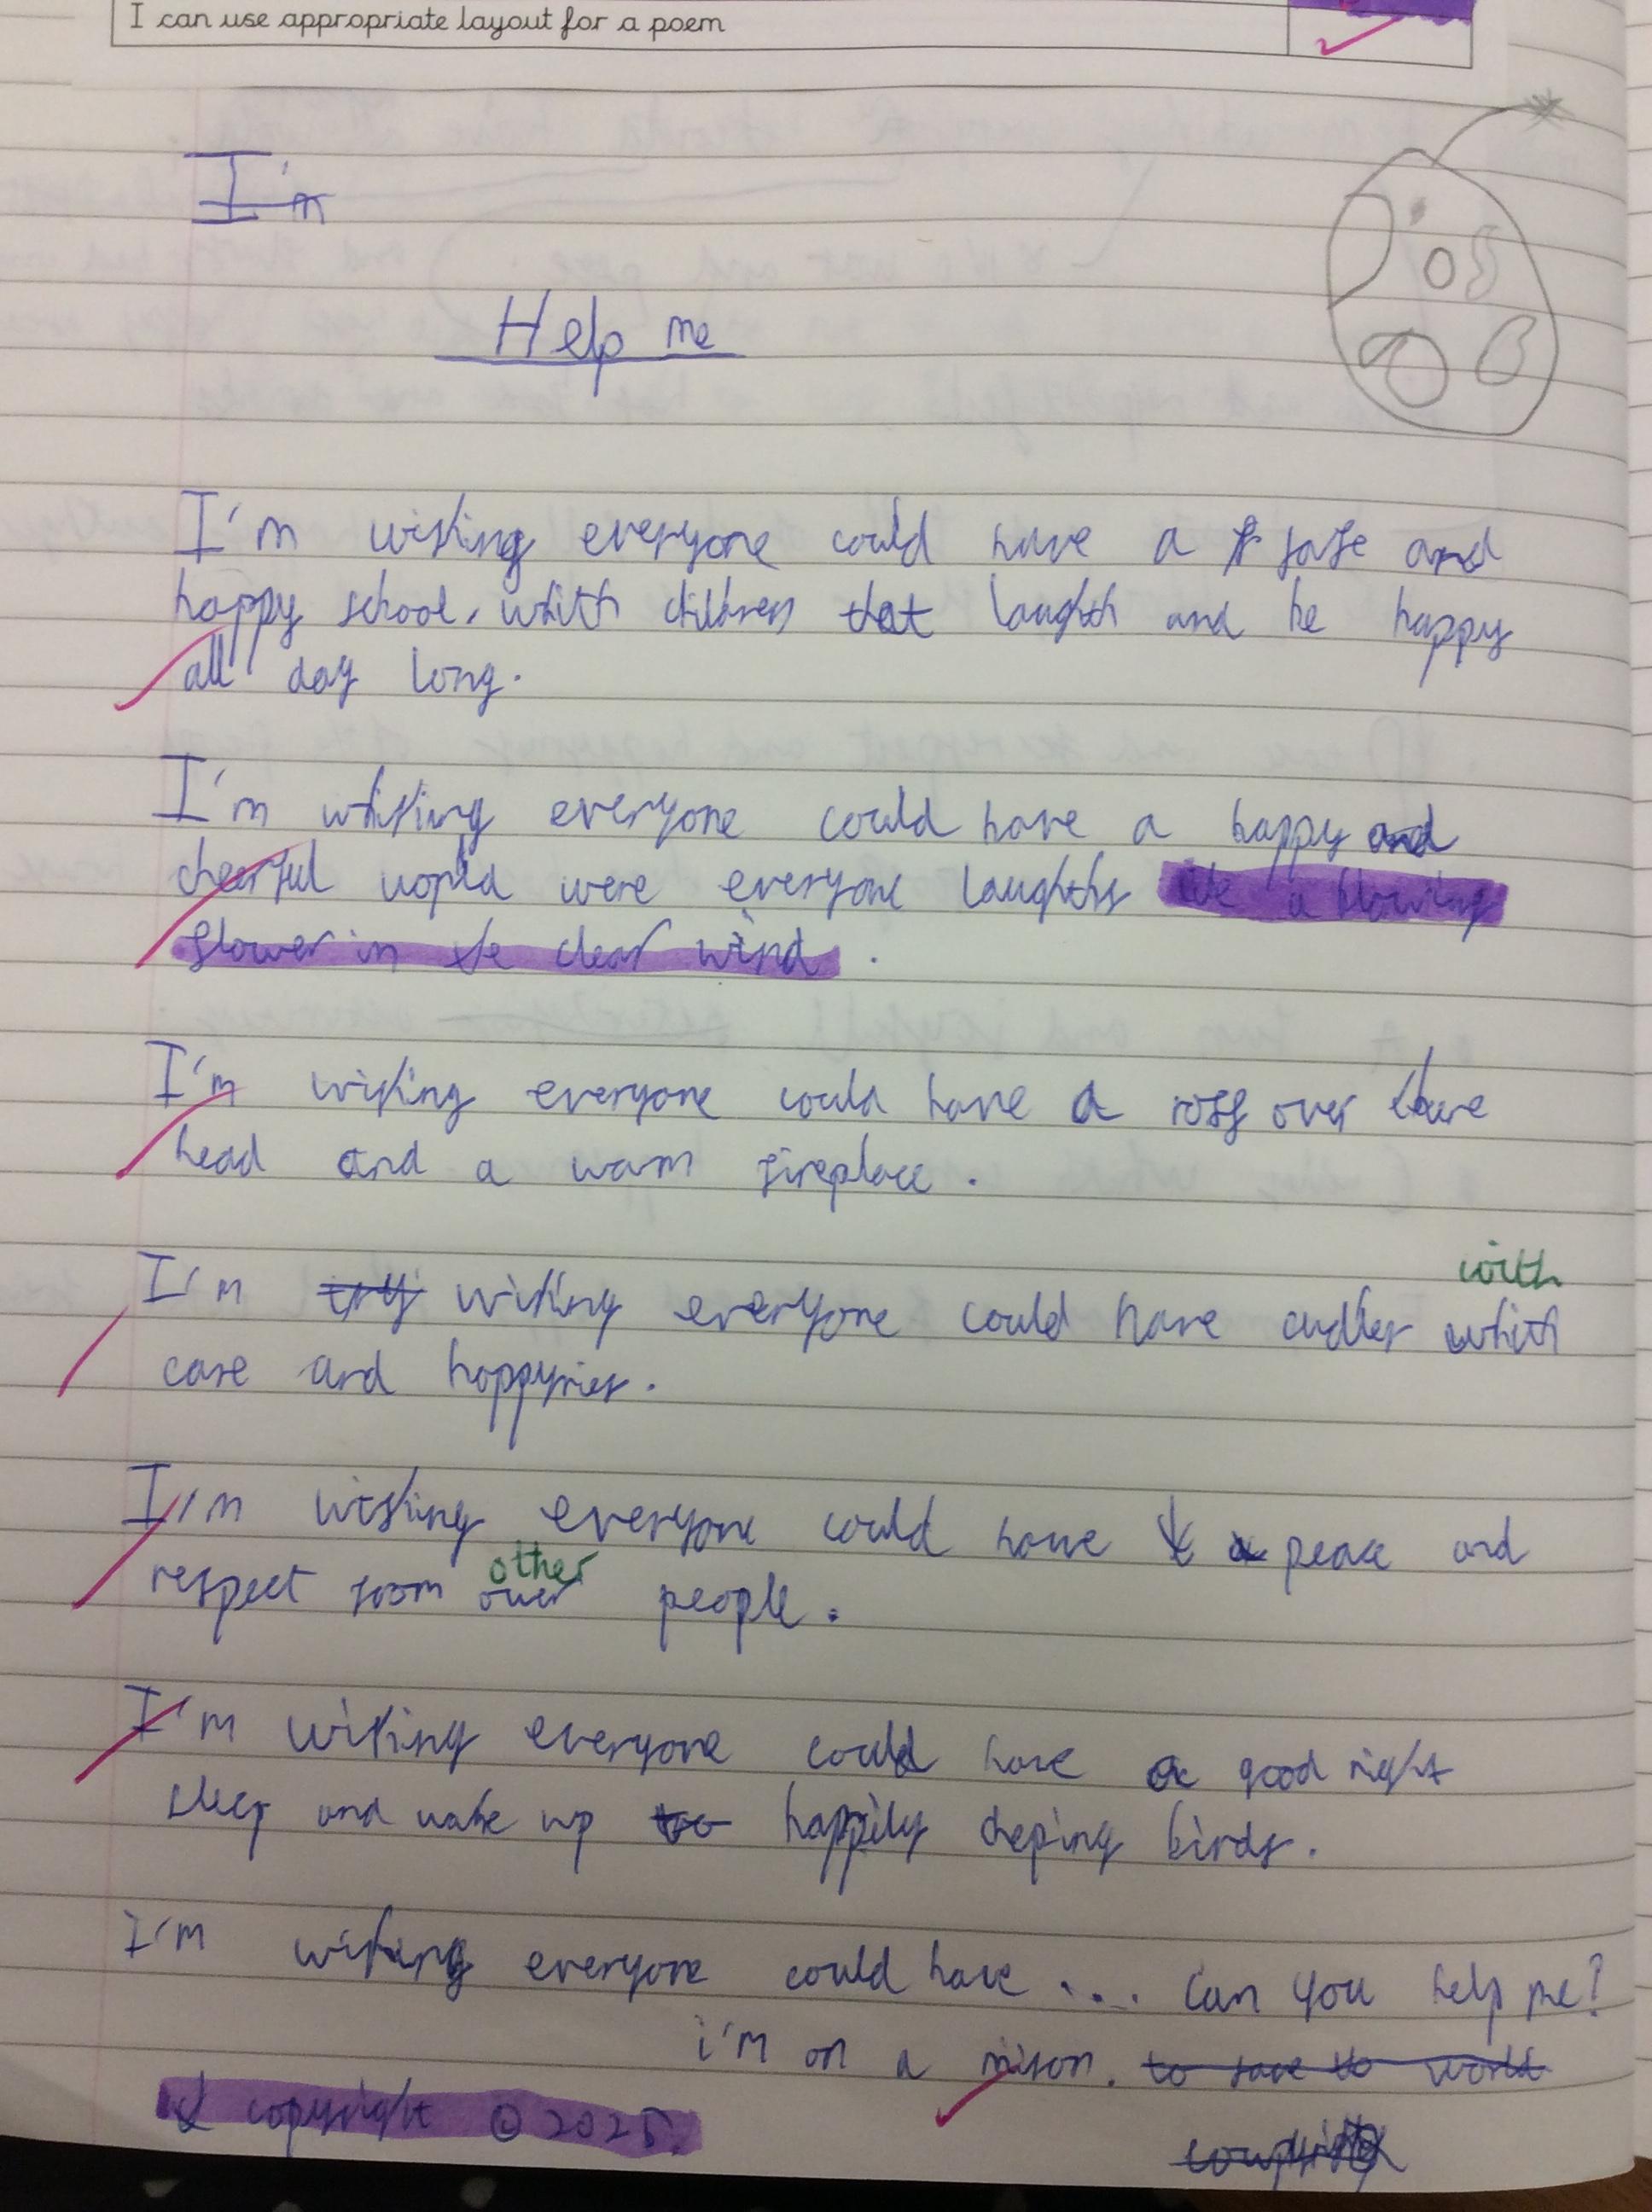 I can use appropriate layout for a poem
I'm
Help me
I'm wishing everyone could have a safe and
happy school, whith children that laughth and be happy
all day long.
I'm whishing everyone could have a happy and
cheerful world were everyone laughths like a blowing
flower in the clear wind.
I'm wishing everyone could have a roff over there
head and a warm fireplace.
with
I'm wishing everyone could have cudles whith
care and happynies.
I'm wishing everyone could have peace and
other
respect from over people.
I'm wishing everyone could have a good night
sleep and wake up too happily cheping birds.
I'm wishing everyone could have .... Can you help me?
i'm on a mison. to save the world
copyright © 2025.